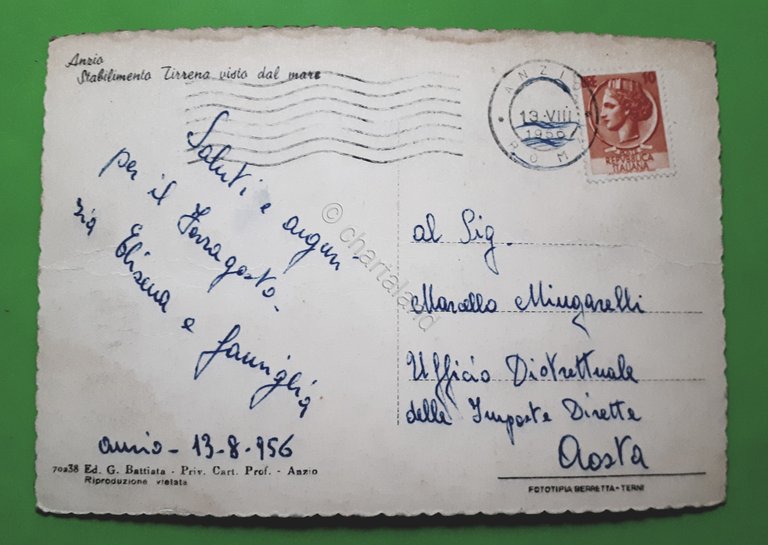 Anzio
Stabilimento Tirrena visto dal mare
ANZIO
13·VIII
1956
ROMA
10
REPVBBLICA
ITALIANA
Saluti e auguri
per il Ferragosto -
zia Elisena e famiglia
anzio - 13-8-956
al Sig.
Marcello Mingarelli
Ufficio Distrettuale
delle Imposte Dirette
Aosta
70238 Ed. G. Battiata - Priv. Cart. Prof. - Anzio
Riproduzione vietata
FOTOTIPIA BERRETTA - TERNI
© chartaland